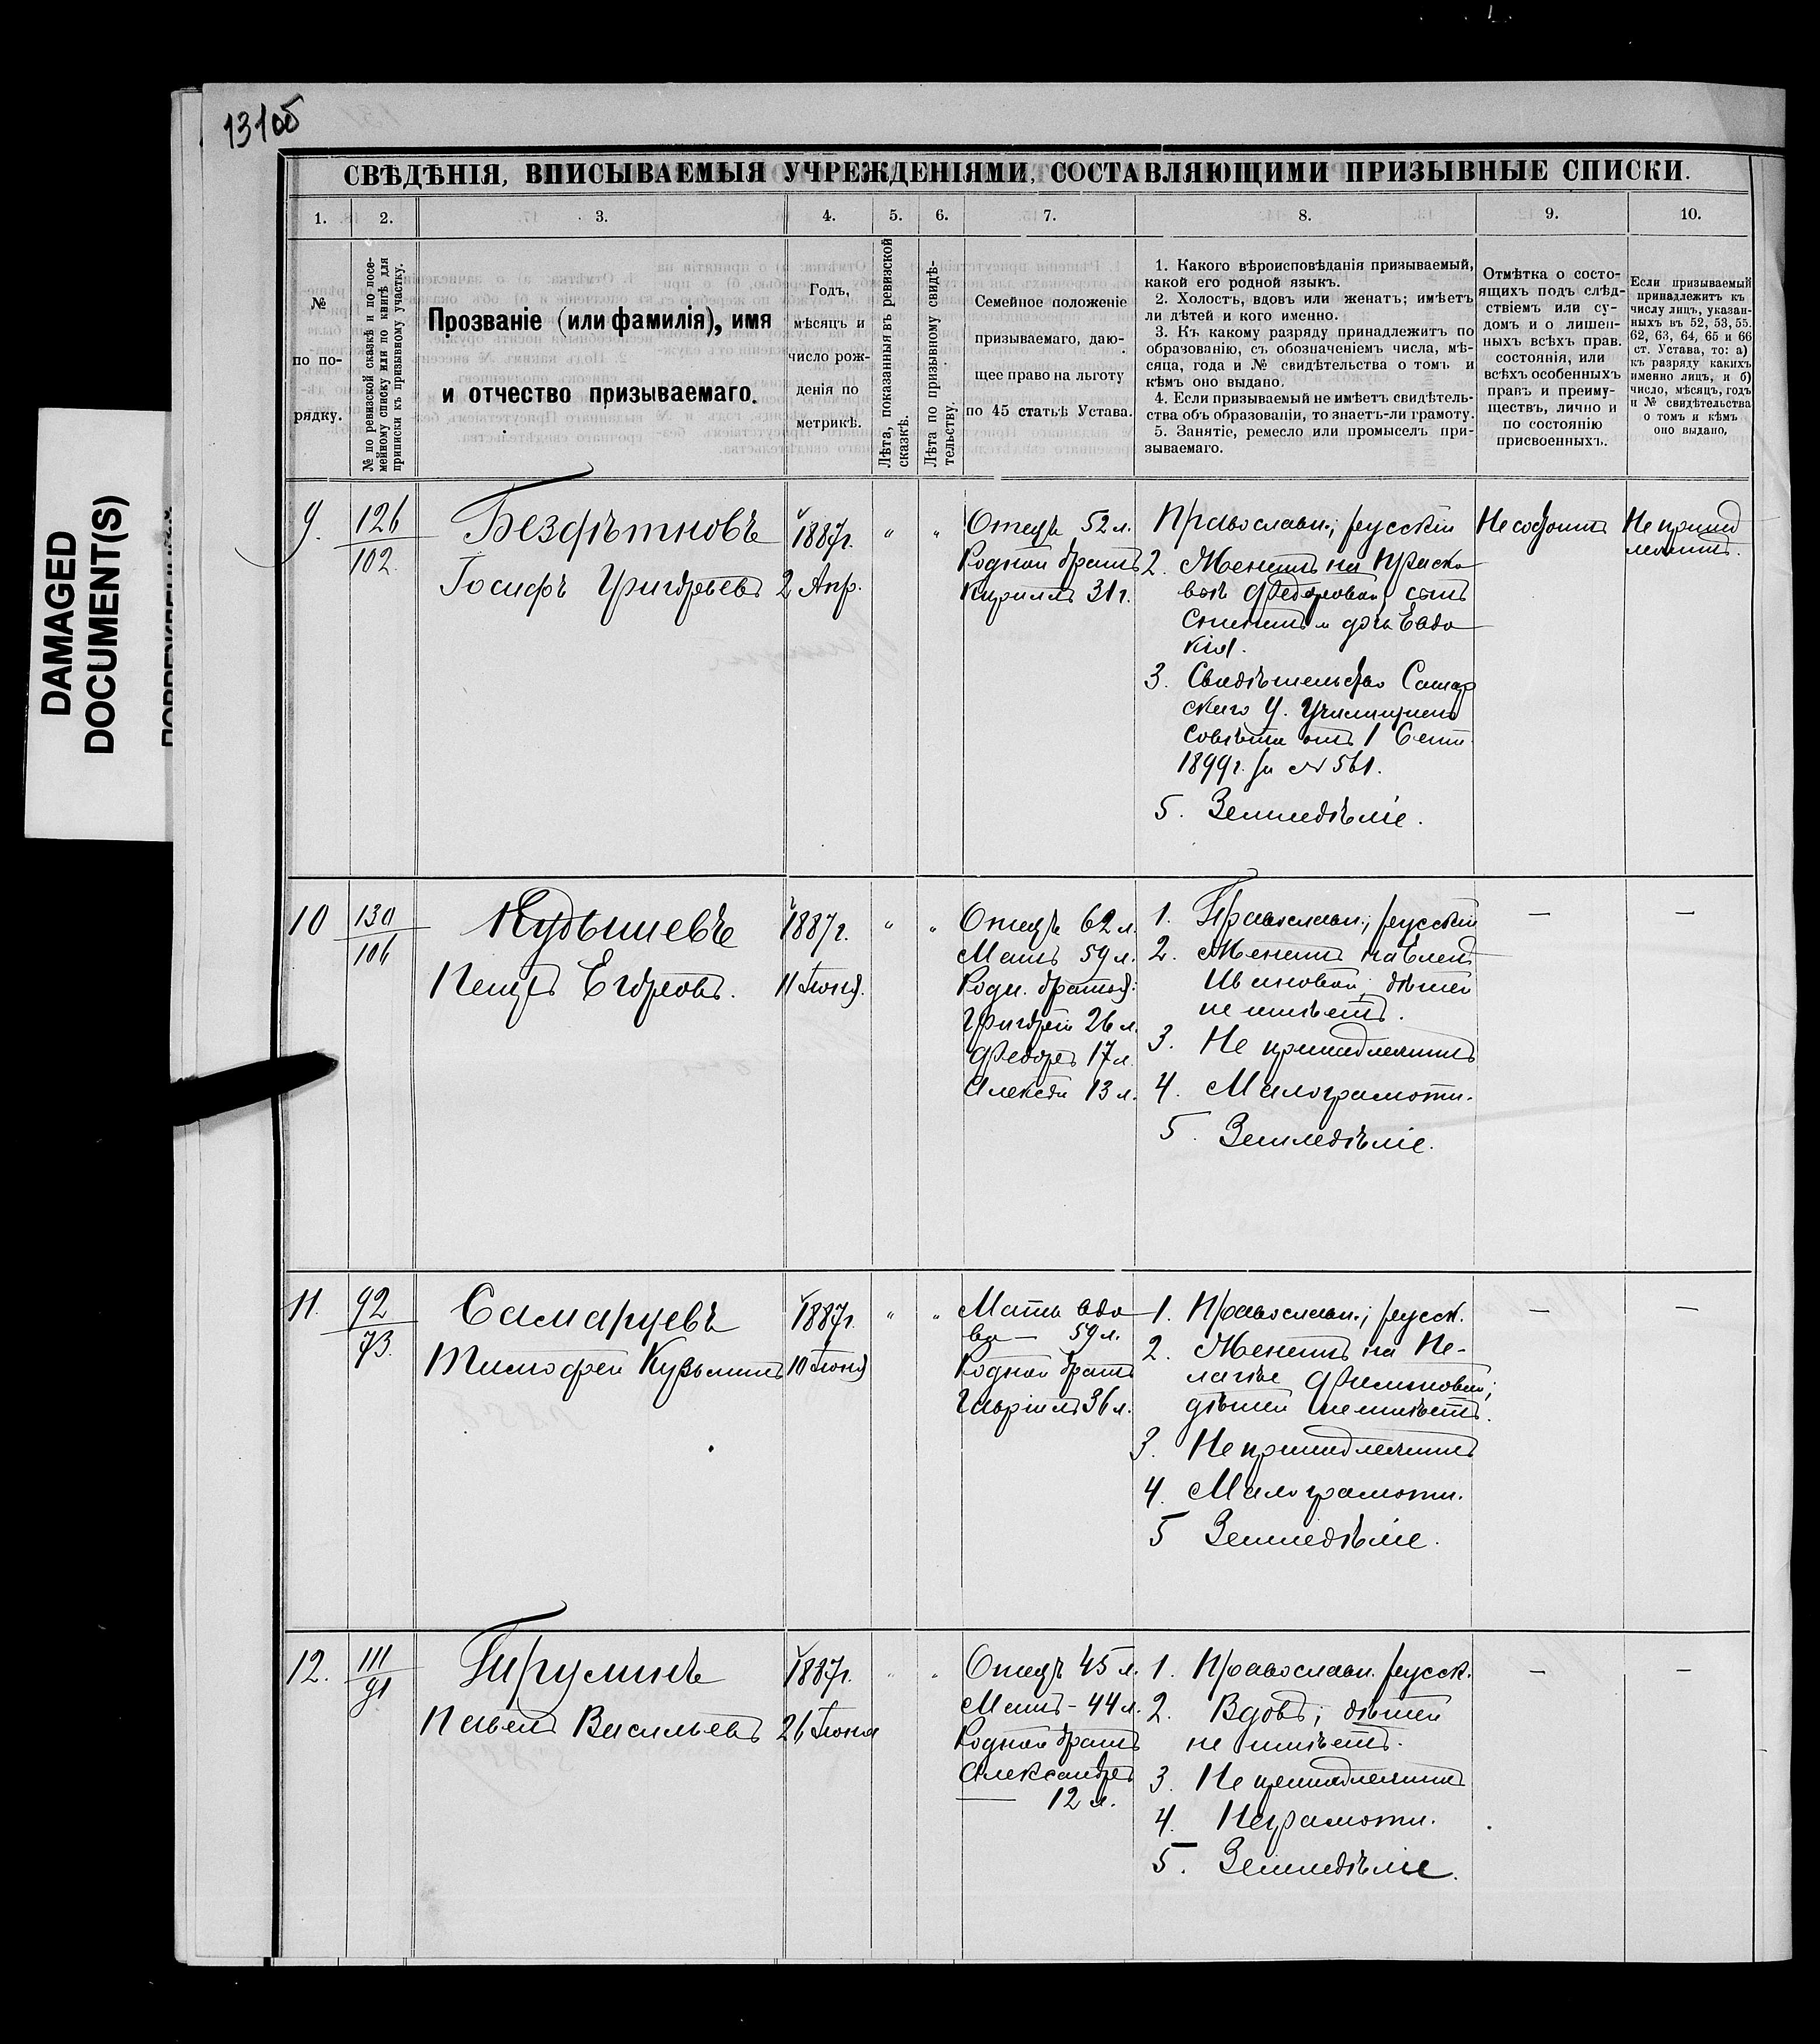 131об
DAMAGED
DOCUMENT(S)
СВѢДѢНІЯ, ВПИСЫВАЕМЫЯ УЧРЕЖДЕНІЯМИ, СОСТАВЛЯЮЩИМИ ПРИЗЫВНЫЕ СПИСКИ.
1. 2. 3. 4. 5. 6. 7. 8. 9. 10.
№
по по-
рядку.
№ по ревизской сказкѣ и по посе-
мейному списку или по книгѣ для
приписки къ призывному участку.
Прозваніе (или фамилія), имя
и отчество призываемаго.
Годъ,
мѣсяцъ и
число рож-
денія по
метрикѣ.
Лѣта, показанныя въ ревизской
сказкѣ.
Лѣта по призывному свидѣ-
тельству.
Семейное положеніе
призываемаго, даю-
щее право на льготу
по 45 статьѣ Устава.
1. Какого вѣроисповѣданія призываемый,
какой его родной языкъ.
2. Холостъ, вдовъ или женатъ; имѣетъ
ли дѣтей и кого именно.
3. Къ какому разряду принадлежитъ по
образованію, съ обозначеніемъ числа, мѣ-
сяца, года и № свидѣтельства о томъ и
кѣмъ оно выдано.
4. Если призываемый не имѣетъ свидѣтель-
ства объ образованіи, то знаетъ-ли грамоту.
5. Занятіе, ремесло или промыселъ при-
зываемаго.
Отмѣтка о состо-
ящихъ подъ слѣд-
ствіемъ или су-
домъ и о лишен-
ныхъ всѣхъ прав.
состоянія, или
всѣхъ особенныхъ
правъ и преиму-
ществъ, лично и
по состоянію
присвоенныхъ.
Если призываемый
принадлежитъ къ
числу лицъ, указан-
ныхъ въ 52, 53, 55.
62, 63, 64, 65 и 66
ст. Устава, то: а)
къ разряду какихъ
именно лицъ, и б)
число, мѣсяцъ, годъ
и № свидѣтельства
о томъ и кѣмъ
оно выдано,
9.
126
102.
Бездѣтновъ
Іосифъ Григорьевъ
1887г.
2 Апр.
" "
Отецъ 52 л.
Родной братъ
Кириллъ 31 г.
Православн.; русскій
2. Женатъ на Праско
вьѣ Федоровой сынъ
и дочь Евдо
кія.
3. Свидѣтельство Самар
скаго У. Училищнаго
Совѣта отъ 1 Сент.
1899г. за № 561.
5. Земледѣліе.
Не состоитъ
Не принад
лежитъ.
10
130
106
Кудышевъ
Петръ Егоровъ.
1887г.
11 Іюня.
" "
Отецъ 62 л.
Мать 59 л.
Родн. братья:
Григорій 26 л.
Федоръ 17 л.
Алексѣй 13 л.
1. Православн.; русскій
2. Женатъ на Еленѣ
Ивановой, дѣтей
не имѣетъ.
3. Не принадлежитъ
4. Малограмотн.
5. Земледѣліе.
— —
11.
92
73.
Самарцевъ
Тимофей Кузьминъ
1887г.
10 Іюня
" "
Мать вдо
ва — 59 л.
Родной братъ
Гавріилъ 36 л.
1. Православн.; русск.
2. Женатъ на Пе-
лагѣе Филипповой;
дѣтей не имѣетъ.
3. Не принадлежитъ
4. Малограмотн.
5 Земледѣліе.
— —
12.
111
91
Гирулинъ
Павелъ Васильевъ
1887г.
26 Іюня
" "
Отецъ 45 л.
Мать - 44 л.
Родной братъ
Александръ
— 12 л.
1. Православн. русск.
2. Вдовъ; дѣтей
не имѣетъ.
3. Не принадлежитъ
4. Неграмотн.
5. Земледѣліе.
— —